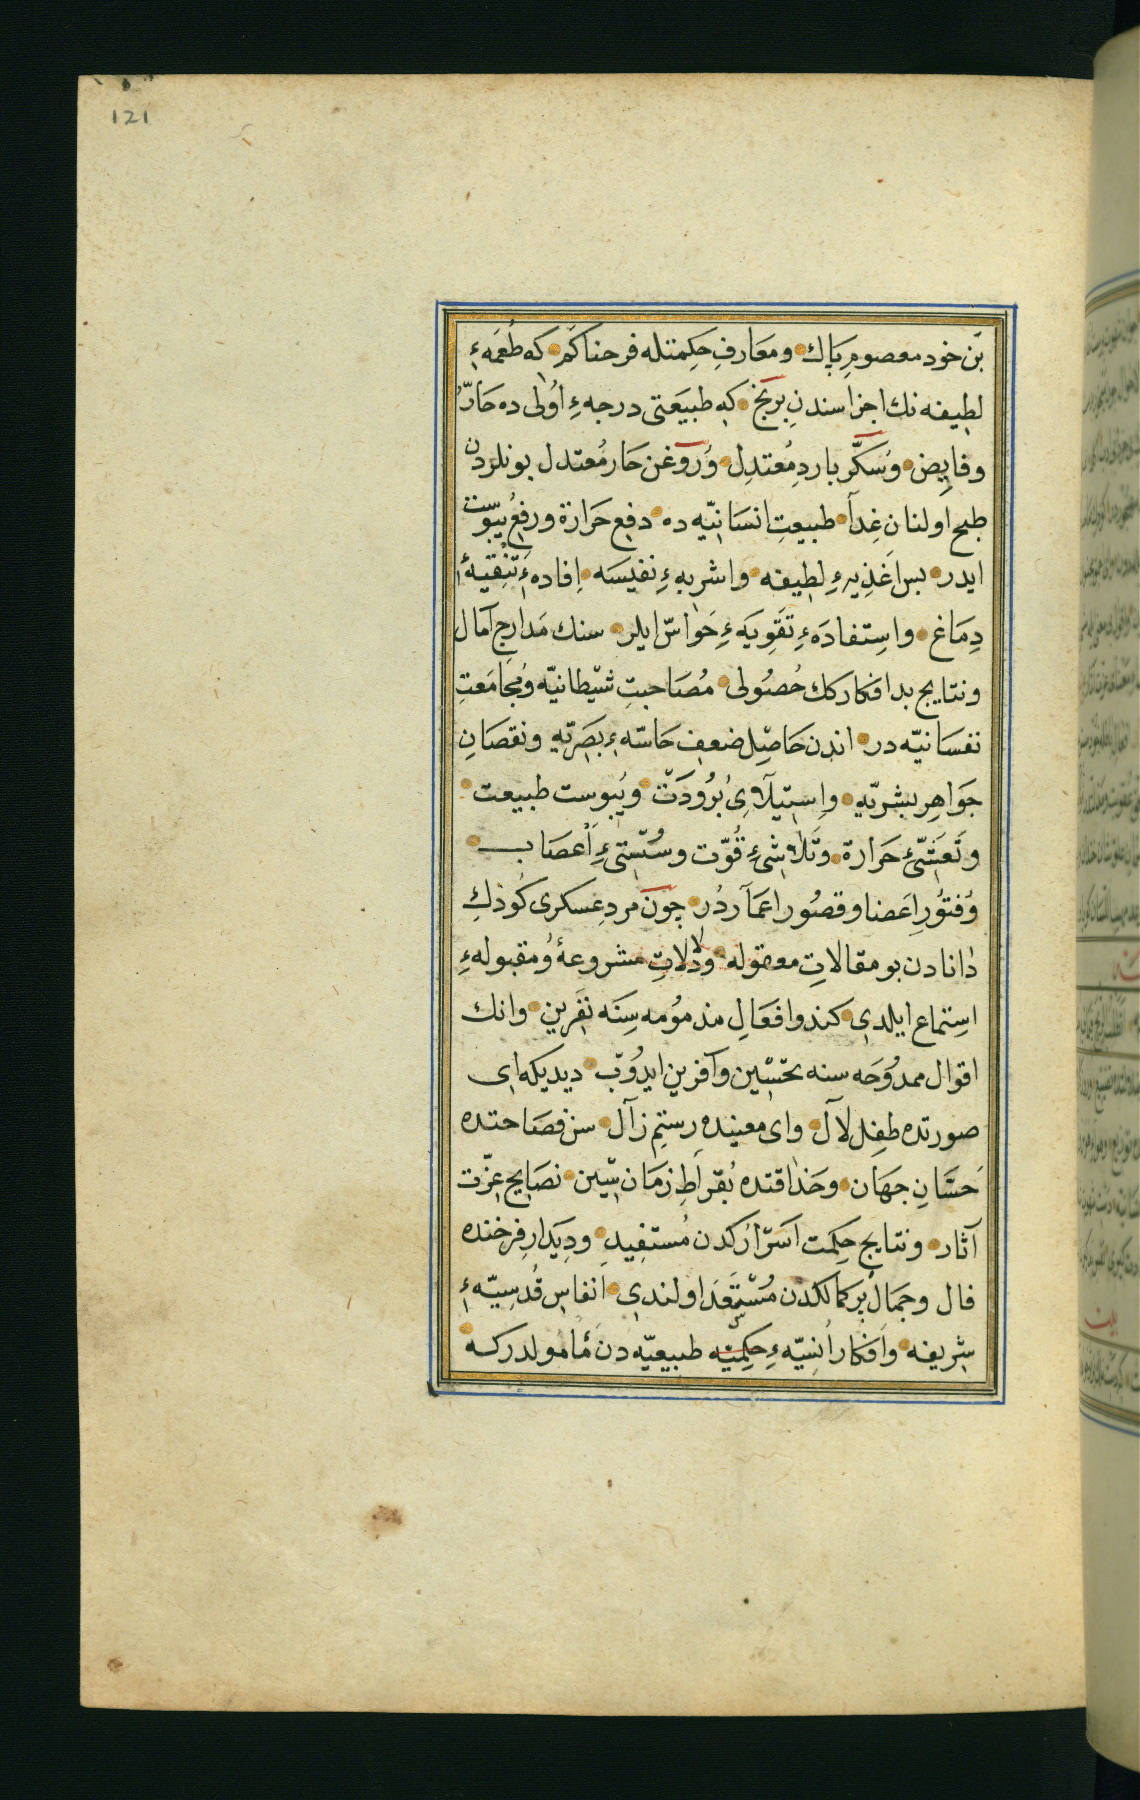 121
بن خود معصومِ پاك ومعارفِ حِكمتله فرحناكم كه طُعمَهءِ
لطِيفه نك اجزاسندن بِرنج كه طبيعَتى درجهءِ اُولى ده حَارّ
وقابِض وسُكَّر باردِ مُعتدِل ورُوغن حَار مُعتدل بونلردن
طبح اولنان غِدآ طبيعتِ انسَانِيّه ده دفعِ حَرارة ورفعِ يُبوست
ايدر بس اَغذِيهءِ لطِيفه واشربهءِ نفيسَه اِفادهءِ تنقيهءِ
دِمَاغ واسِتفادَهءِ تقوِيَهءِ حَواسّ ايلر سنك مَدارج آمال
ونتايج بد افكارك حُصُولى مُصَاحبتِ شيطانيّه ومُجَامَعتِ
نفسَانيّه در اندن حَاصِل ضعفِ حَاسّهءِ بصَريّه ونقصَانِ
جوَاهِر بشريّه واِستيلآءِ بُرُودَت ويُبوست طبيعت
وتَعَشّىءِ حَرارة وتَلاشىءِ قُوّت وسُستىءِ اَعصَاب
وفتُورِ اعَضا وقصُور اعمَآردُر چون مردِ عسكرى كُوذكِ
دانادن بو مقالاتِ معقوله ودلالاتِ مشروعهٔ ومقبولهءِ
استماع ايلدى كندو افعَالِ مذمُومه سِنَه نفرين وانك
اقوال ممدُوحَه سنه تحسِين وآفرين ايدُوب ديديكه اى
صورتده طفِل لآل واى معنيده رستمِ زآل سن فصَاحتده
حَسَّانِ جهَان وحَذاقتده بُقرَاطِ زمَان سِين نصَايح عِزّت
آثار ونتايج حِكمت اَسرَاركدن مُستفِيد ودِيَدارِ فرخنده
فال وجمَال بركمالكدن مُستسعَد اولندى انفاس قُدسِيّهءِ
شريفه وافكار اُنِسيّهءِ حِكمِيّه طبيعيّه دن مأمولدركه